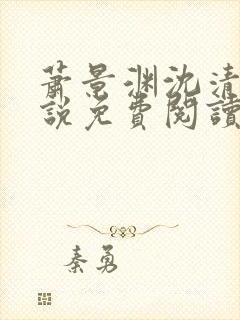 蕭景渊沈清
說免費閱讀
秦勇